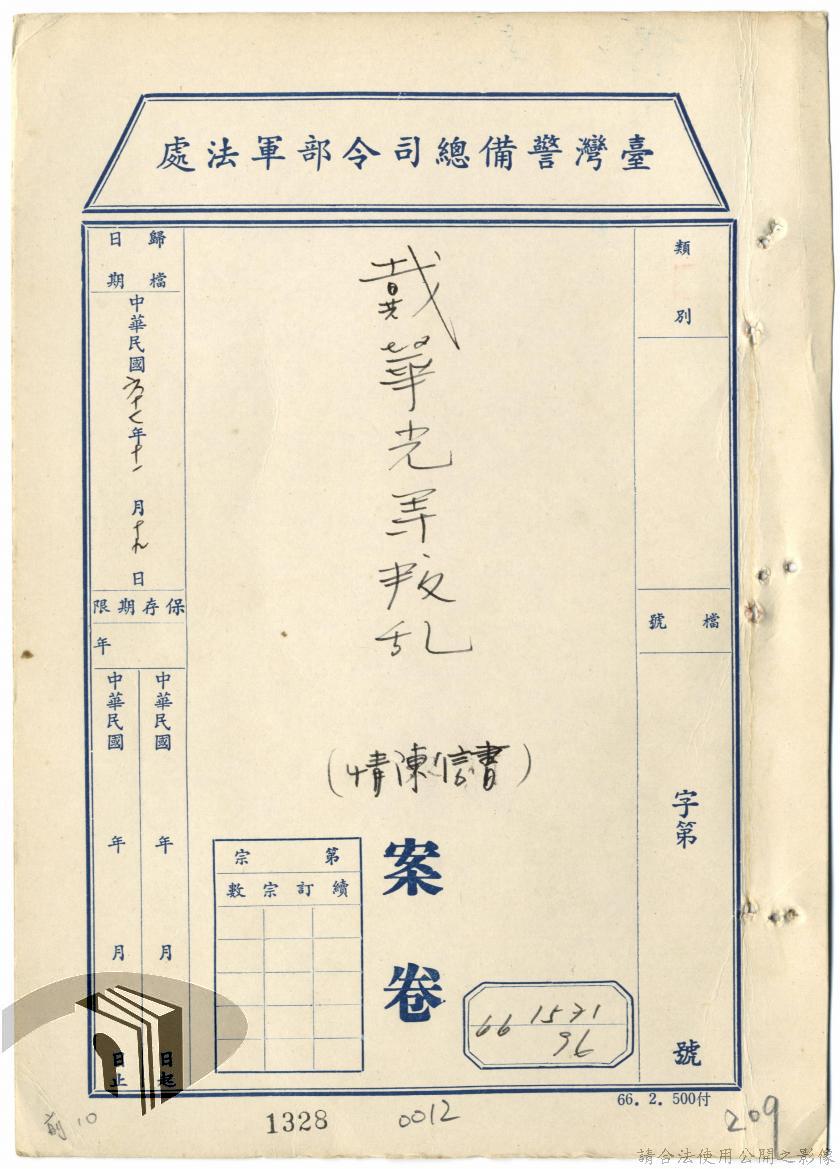 臺灣警備總司令部軍法處
類別
檔號
字第
號
戴華光等叛乱
(情陳信書)
案卷
第宗
續訂宗數
66 1571
96
歸檔日期
中華民國六十七年十一月十九日
保存期限
年
中華民國 年 月 日起
中華民國 年 月 日止
66. 2. 500付
前10
1328
0012
209
請合法使用公開之影像